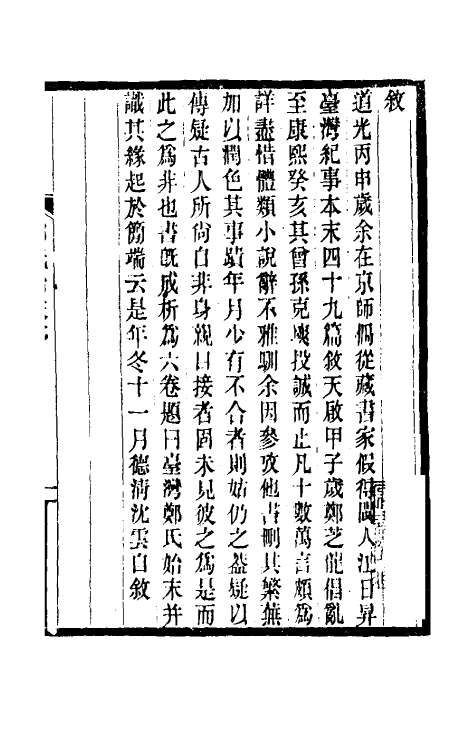 敘
道光丙申歲余在京師偶從藏書家假得閩人江日昇
臺灣紀事本末四十九篇敘天啟甲子歲鄭芝龍倡亂
至康熙癸亥其曾孫克塽投誠而止凡十數萬言頗爲
詳盡惜體類小說辭不雅馴余因參攷他書刪其繁蕪
加以潤色其事蹟年月少有不合者則姑仍之葢疑以
傳疑古人所尙自非身親目接者固未見彼之爲是而
此之爲非也書旣成析爲六卷題曰臺灣鄭氏始末并
識其緣起於簡端云是年冬十一月德清沈雲自敘